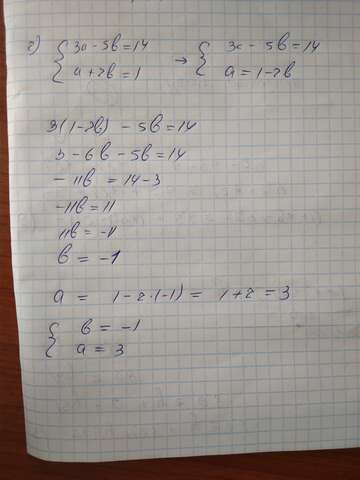 г) { 3a - 5b = 14 → { 3a - 5b = 14
a + 2b = 1 a = 1 - 2b
3(1 - 2b) - 5b = 14
3 - 6b - 5b = 14
- 11b = 14 - 3
- 11b = 11
11b = - 11
b = - 1
a = 1 - 2·(-1) = 1 + 2 = 3
{ b = -1
a = 3